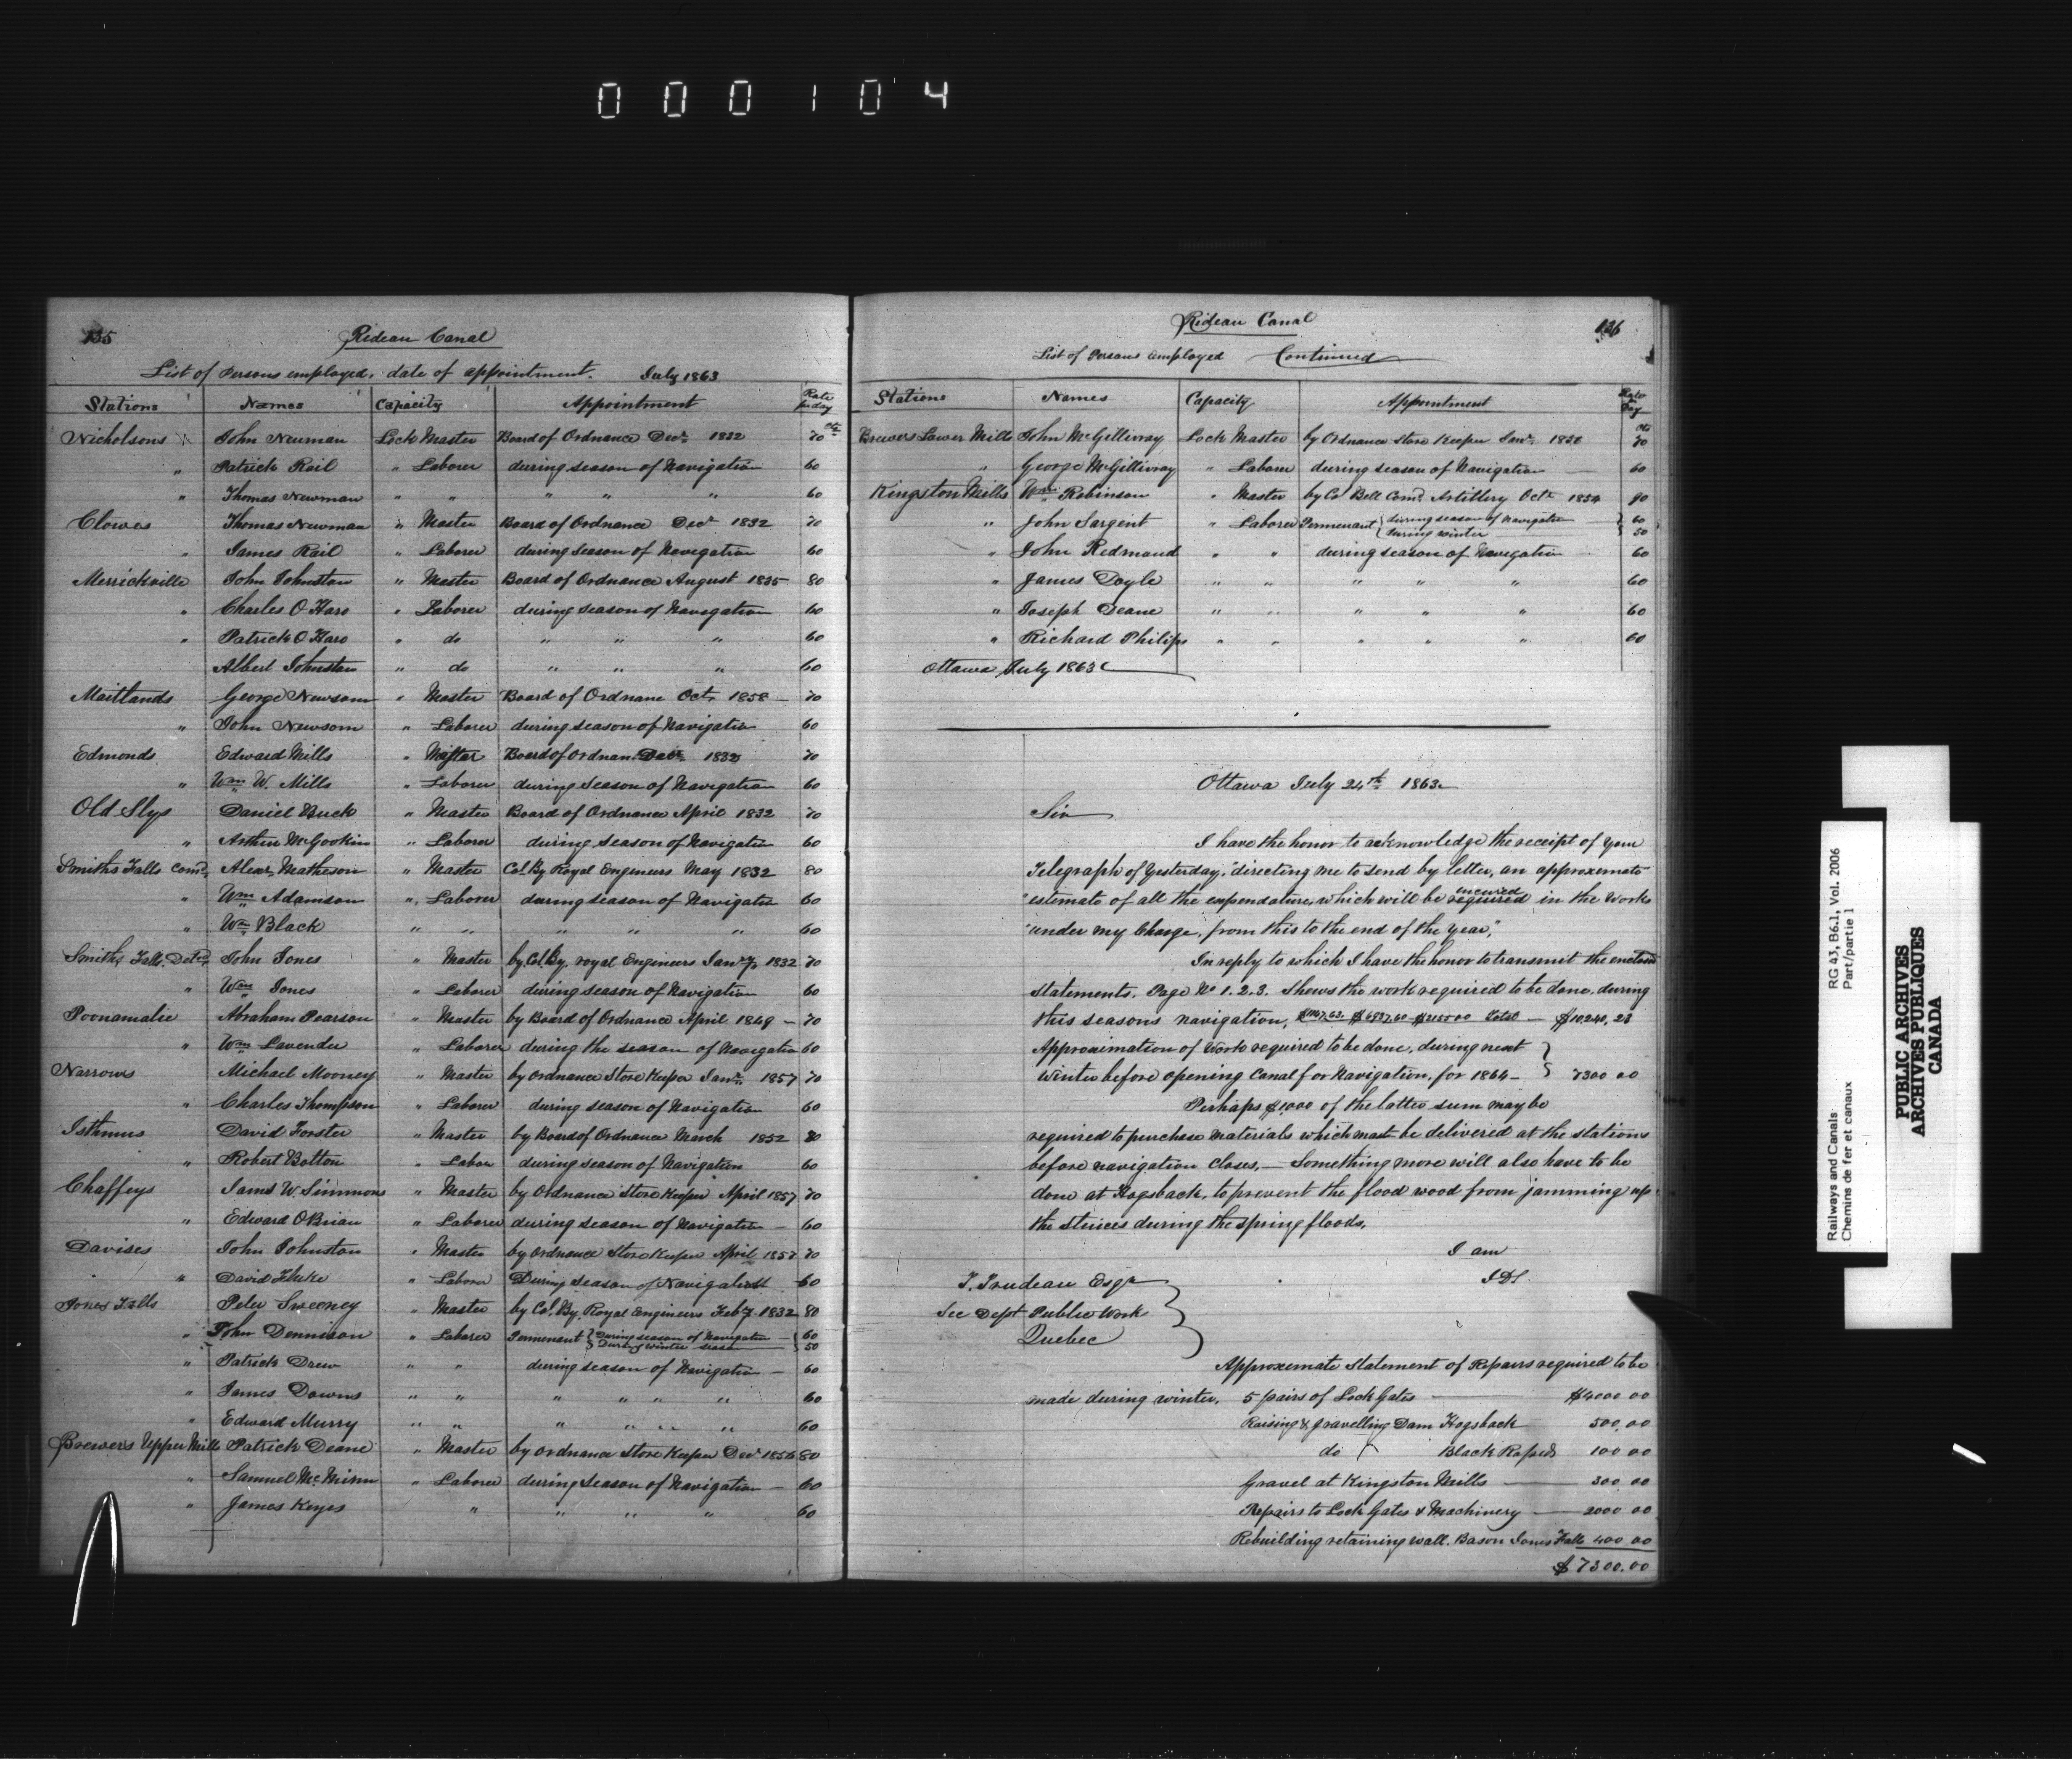 000104
135
Rideau Canal
List of Persons employed, date of appointment. July 1863
Stations Names Capacity Appointment Rate per day
Nicholsons John Newman Lock Master Board of Ordnance Decr 1832 70 cts
" Patrick Rail " Laborer during season of Navigation 60
" Thomas Newman " " " " " 60
Clowes Thomas Newman " Master Board of Ordnance Decr 1832 70
" James Rail " Laborer during season of Navigation 60
Merrickville John Johnston " Master Board of Ordnance August 1835 80
" Charles O Haro " Laborer during season of Navigation 60
" Patrick O Haro " do " " " 60
Albert Johnston " do " " " 60
Maitlands George Newsom " Master Board of Ordnanc Oct. 1858 — 70
" John Newsom " Laborer during season of Navigation 60
Edmonds Edward Mills " Master Board of Ordnan Decr 1832 70
" Wm W. Mills " Laborer during season of Navigation 60
Old Slys Daniel Buck " Master Board of Ordnance April 1832 70
" Arthur McGookin " Laborer during season of Navigation 60
Smiths Falls Comd Alexr Matheson " Master Col. By Royal Engineers May 1832 80
" Wm Adamson " Laborer during season of Navigation 60
" Wm Black " " " " " 60
Smiths Falls Detd John Jones " Master by Col. By, royal Engineers Jany 1832 70
" Wm Jones " Laborer during season of Navigation 60
Poonamalie Abraham Pearson " Master by Board of Ordnance April 1849 — 70
" Wm Lavender " Laborer during the season of Navigation 60
Narrows Michael Mooney " Master by Ordnance Store Keeper Janr 1857 70
" Charles Thompson " Laborer during season of Navigation 60
Isthmus David Forster " Master by Board of Ordnance March 1852 80
" Robert Botton " Labor during season of Navigation 60
Chaffeys Jams W Simmons " Master by Ordnance Store Keeper April 1857 70
" Edward OBrian " Laborer during season of Navigation — 60
Davises John Johnston " Master by Ordnance Store Keeper April 1857 70
" David Fluke " Laborer During season of Navigation 60
Jones Falls Peter Sweeney " Master by Col. By Royal Engineers Feby 1832 80
" John Dennison " Laborer Permenant { During season of Navigation — 60
During winter season — 50
" Patrick Drew " " during season of Navigation — 60
" James Downs " " " " " " 60
" Edward Murry " " " " " " 60
Brewers Upper Mills Patrick Deane " Master by Ordnance Store Keeper Decr 1856 80
" Samuel McMinn " Laborer during season of Navigation — 60
" James Keyes " " " " 60
Rideau Canal
136
List of Persons employed Continued
Stations Names Capacity Appointment Rate Day
Brewers Lower Mills John McGillivray Lock Master by Ordnance Store Keeper Janr 1856 70 cts
" George McGillivray " Laborer during season of Navigation — 60
Kingston Mills Wm Robinson " Master by Co Bell Comd Artillery Octr 1854 90
" John Sargent " Laborer Permenant { during season of Navigation — 60
During winter — 50
" John Redmond " " during season of Navigation 60
" James Doyle " " " " " 60
" Joseph Deane " " " " " 60
" Richard Philips " " " " " 60
Ottawa July 1863
Ottawa July 24th 1863
Sir
I have the honor to acknowledge the receipt of your
Telegraph of Yesterday, "directing me to send by letter, an approximate
"estimate of all the expendature, which will be required incured in the Works
"under my Charge, from this to the end of the Year,"
In reply to which I have the honor to transmit the enclosed
statements. Page No 1. 2. 3. Shews the work required to be done, during
this seasons navigation, $6937.60 Total — $10,240,23
Approximation of Work required to be done, during next
Winter before opening Canal for Navigation, for 1864 — } 7300 00
Perhaps $1,000 of the latter sum may be
required to purchase materials which must be delivered at the stations
before navigation Closes, — Something more will also have to be
done at Hogsback, to prevent the flood wood from jamming up
the sluices during the spring floods.
I am
J D S
T. Trudeau Esqr
Sec Dept Public Work
Quebec
Approxemate Statement of Repairs required to be
made during winter, 5 pairs of Lock Gates — $4000 00
Raising & gravelling Dam Hogsback 500.00
do Black Rapids 100 00
Gravel at Kingston Mills — 300 00
Repairs to Lock Gates & Machinery — 2000 00
Rebuilding retaining wall. Bason Jones Falls 400 00
$7300.00
Railways and Canals
Chemins de fer et canaux
RG 43, B6.1, Vol. 2006
Part/partie 1
PUBLIC ARCHIVES
ARCHIVES PUBLIQUES
CANADA